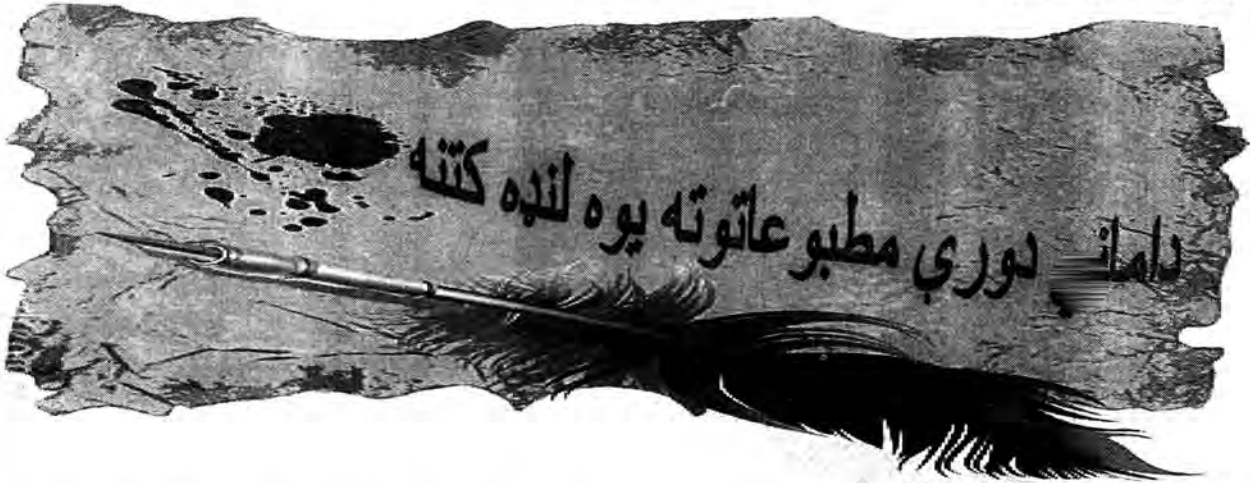 داماني دورې مطبوعاتوته يوه لنډه کتنه